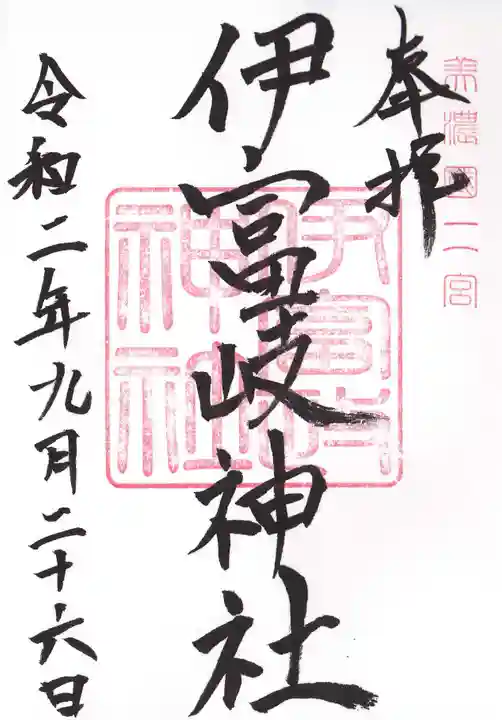 美濃国二宮
奉拝
伊富岐神社
伊富岐神社
令和二年九月二十六日